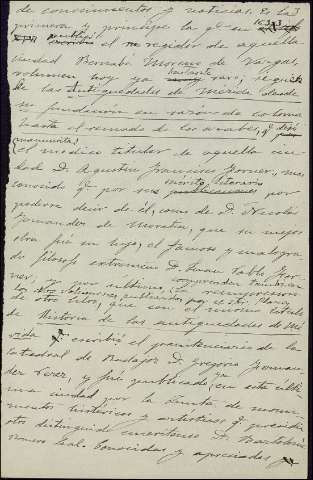 de conocimientos y noticias. Es la
primera y principal la q.e en 1633
publicó el regidor de aquella
ciudad Bernabé Moreno de Vargas,
volumen hoy ya bastante raro;
las antigüedades de Mérida desde
su fundación en razón de colonia
hasta el reinado de los árabes, q.
manuscrita
el médico titular de aquella ciu-
dad D. Agustín Francisco Forner, más
conocido q. por sus mérito literario por
pudiera decir de él, como de D. Nicolás
Fernández de Moratín, que su mejor
obra fué su hijo, el famoso y malogra-
do filósofo extremeño D. Juan Pablo For-
ner; y por último, comprender también
los dos volúmenes, publicados por el Sr. Plano,
de otro libro, que con el mismo título
de Historia de las antigüedades de Mé-
rida escribió el penitenciario de la
Catedral de Badajoz D. Gregorio Fernán-
dez Pérez, y fué publicado ya en esta últi-
ma ciudad por la Junta de monu-
mentos históricos y artísticos q. presidía
otro distinguido emeritense D. Bartolomé
Romero Leal. Conocidas y apreciadas